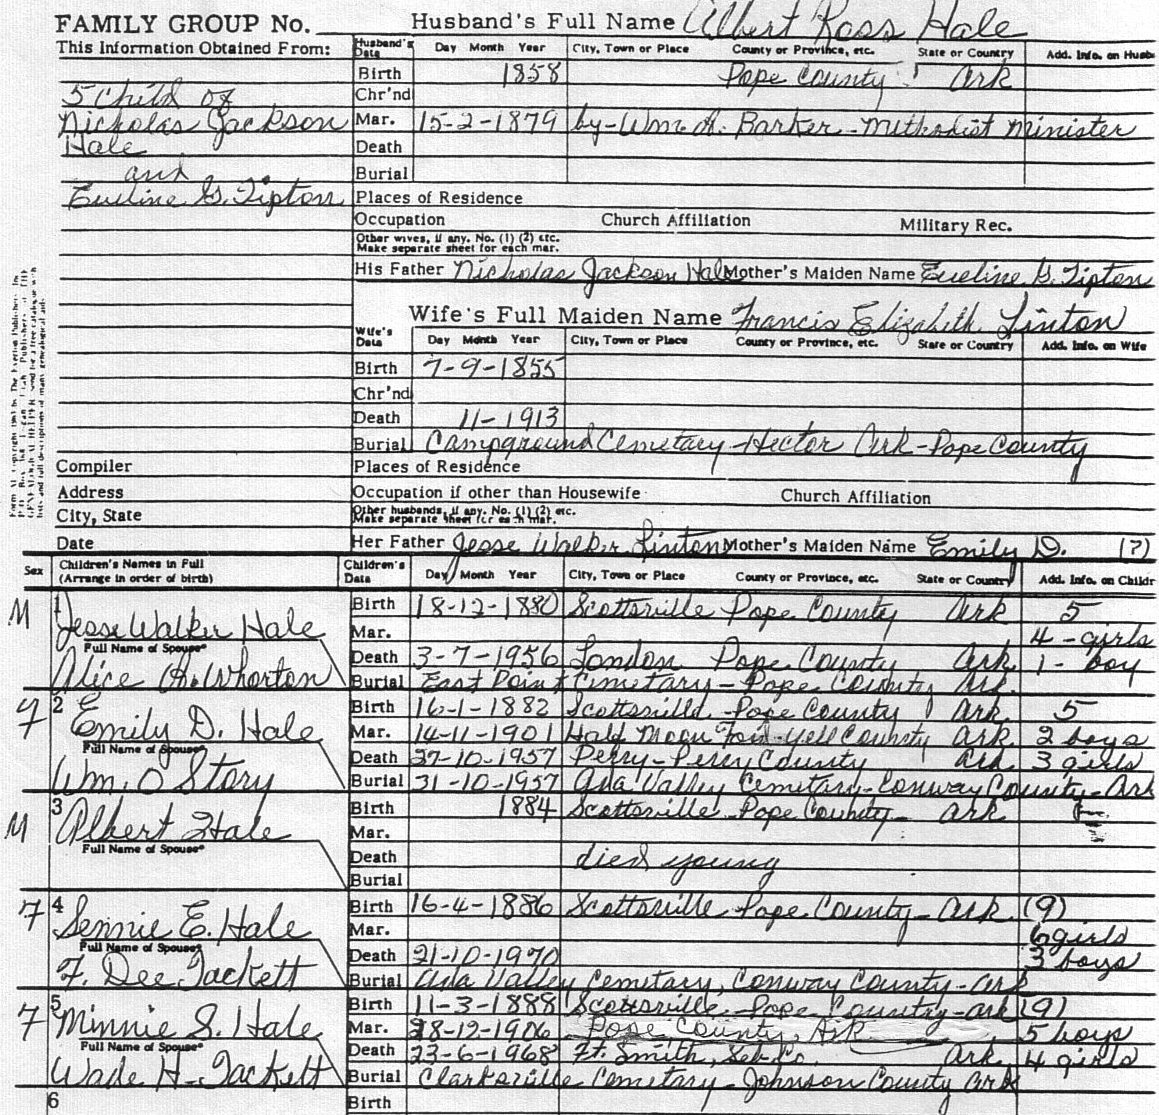 FAMILY GROUP No. Husband's Full Name Albert Ross Hale
This Information Obtained From: Husband's Data Day Month Year City, Town or Place County or Province, etc. State or Country Add. Info. on Husb
Birth 1858 Pope County Ark
5 Child of Chr'nd
Nicholas Jackson Mar. 15-2-1879 by-Wm. A. Barker-Methodist Minister
Hale Death
and Burial
Eueline G. Tipton Places of Residence
Occupation Church Affiliation Military Rec.
Other wives, if any. No. (1) (2) etc.
Make separate sheet for each mar.
His Father Nicholas Jackson Hale Mother's Maiden Name Eueline G. Tipton
Wife's Full Maiden Name Francis Elizabeth Linton
Wife's Data Day Month Year City, Town or Place County or Province, etc. State or Country Add. Info. on Wife
Birth 7-9-1855
Chr'nd
Death 11-1913
Burial Campground Cemetary-Hector Ark-Pope County
Compiler Places of Residence
Address Occupation if other than Housewife Church Affiliation
City, State Other husbands, if any. No. (1) (2) etc.
Make separate sheet for each mar.
Date Her Father Jesse Walker Linton Mother's Maiden Name Emily D. (?)
Sex Children's Names in Full Children's Data Day Month Year City, Town or Place County or Province, etc. State or Country Add. Info. on Childr
(Arrange in order of birth)
M 1 Jesse Walker Hale Birth 18-12-1880 Scottsville Pope County Ark 5
Mar. 4-girls
Full Name of Spouse* Death 3-7-1956 London Pope County Ark 1-boy
Alice A. Whorton Burial East Point Cemetary-Pope County Ark.
7 2 Emily D. Hale Birth 16-1-1882 Scottsville-Pope County Ark. 5
Mar. 14-11-1901 Half Moon Yell County Ark. 2 boys
Full Name of Spouse* Death 27-10-1957 Perry-Perry County Ark 3 girls
Wm. O Story Burial 31-10-1957 Ada Valley Cemetary-Conway County-Ark
M 3 Albert Hale Birth 1884 Scottsville-Pope County-Ark
Mar.
Full Name of Spouse* Death died young
Burial
7 4 Sennie E. Hale Birth 16-4-1886 Scottsville-Pope County-Ark. (9)
Mar. 6 girls
Full Name of Spouse* Death 21-10-1970 3 boys
F. Dee Tackett Burial Ada Valley Cemetary, Conway County-Ark
7 5 Minnie S. Hale Birth 11-3-1888 Scottsville-Pope Country-ark (9)
Mar. 28-12-1906 Pope County, Ark 5 boys
Full Name of Spouse* Death 23-6-1968 Ft. Smith, Seb. Co. Ark 4 girls
Wade H. Tackett Burial Clarksville Cemetary-Johnson County Ark
6 Birth